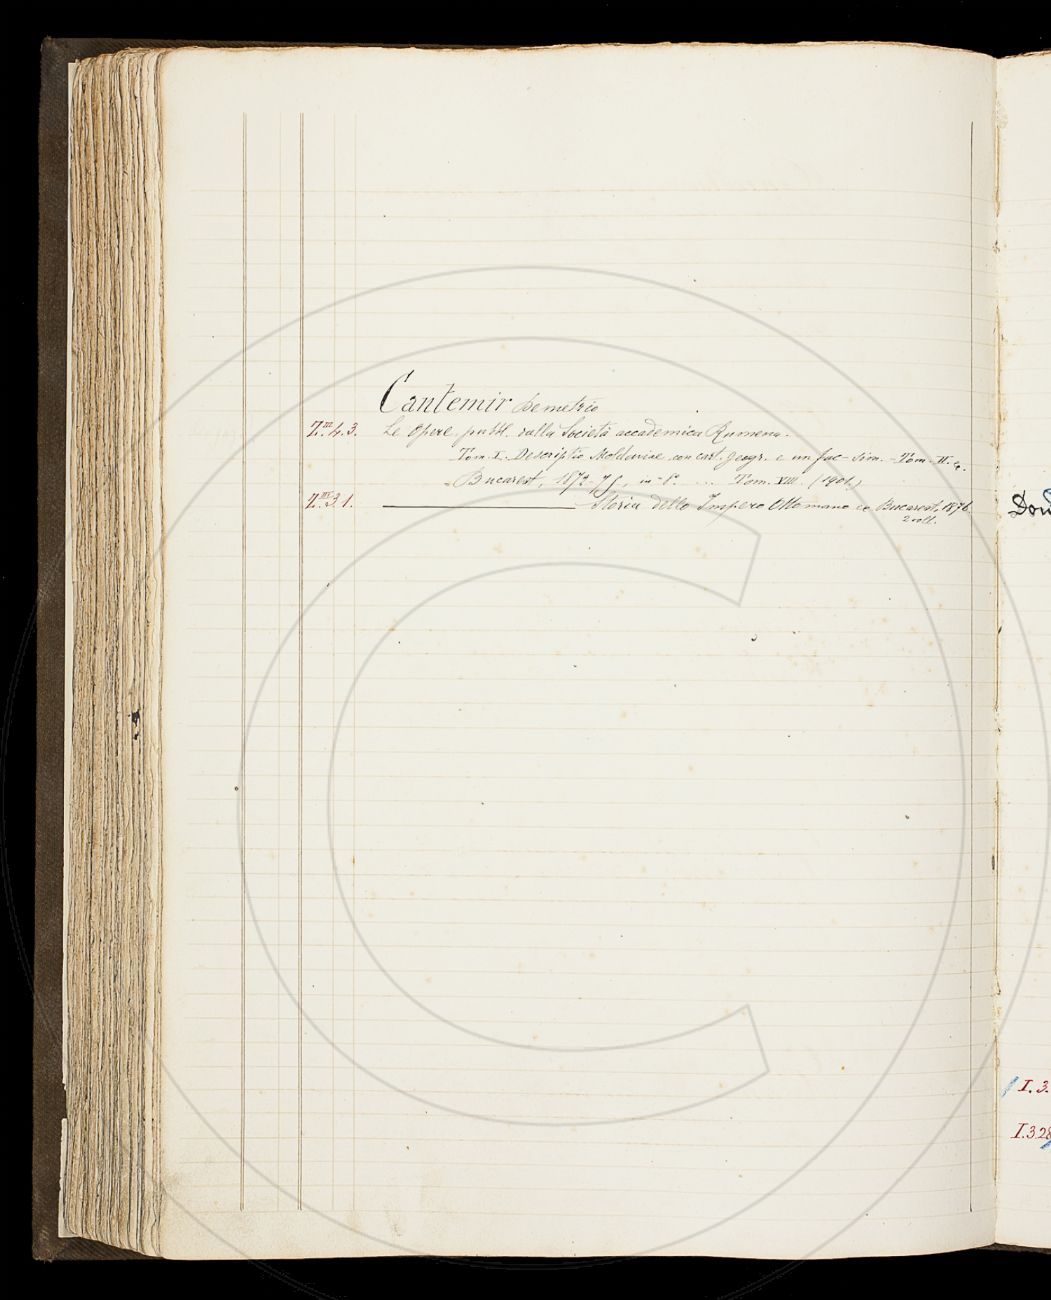 Cantemir Demetrio
Z.III.4.3. Le Opere, pubbl. dalla Società accademica Rumena.
Tom. I. Descriptio Moldaviae con cart. geogr. e un fac-sim. - Tom. II.
Bucarest, 1872-75, in-8° ... Tom. VIII. (1901)
Z.III.3.1. Storia dello Impero Ottomano Bucarest, 1876.
2 voll.
I.3.
I.3.28